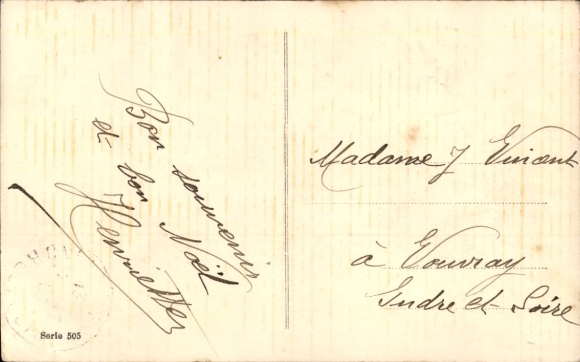 Bon souvenir
et bon Noël
Henriette
Madame J Vincent
à Vouvray
Indre et Loire
Serie 505